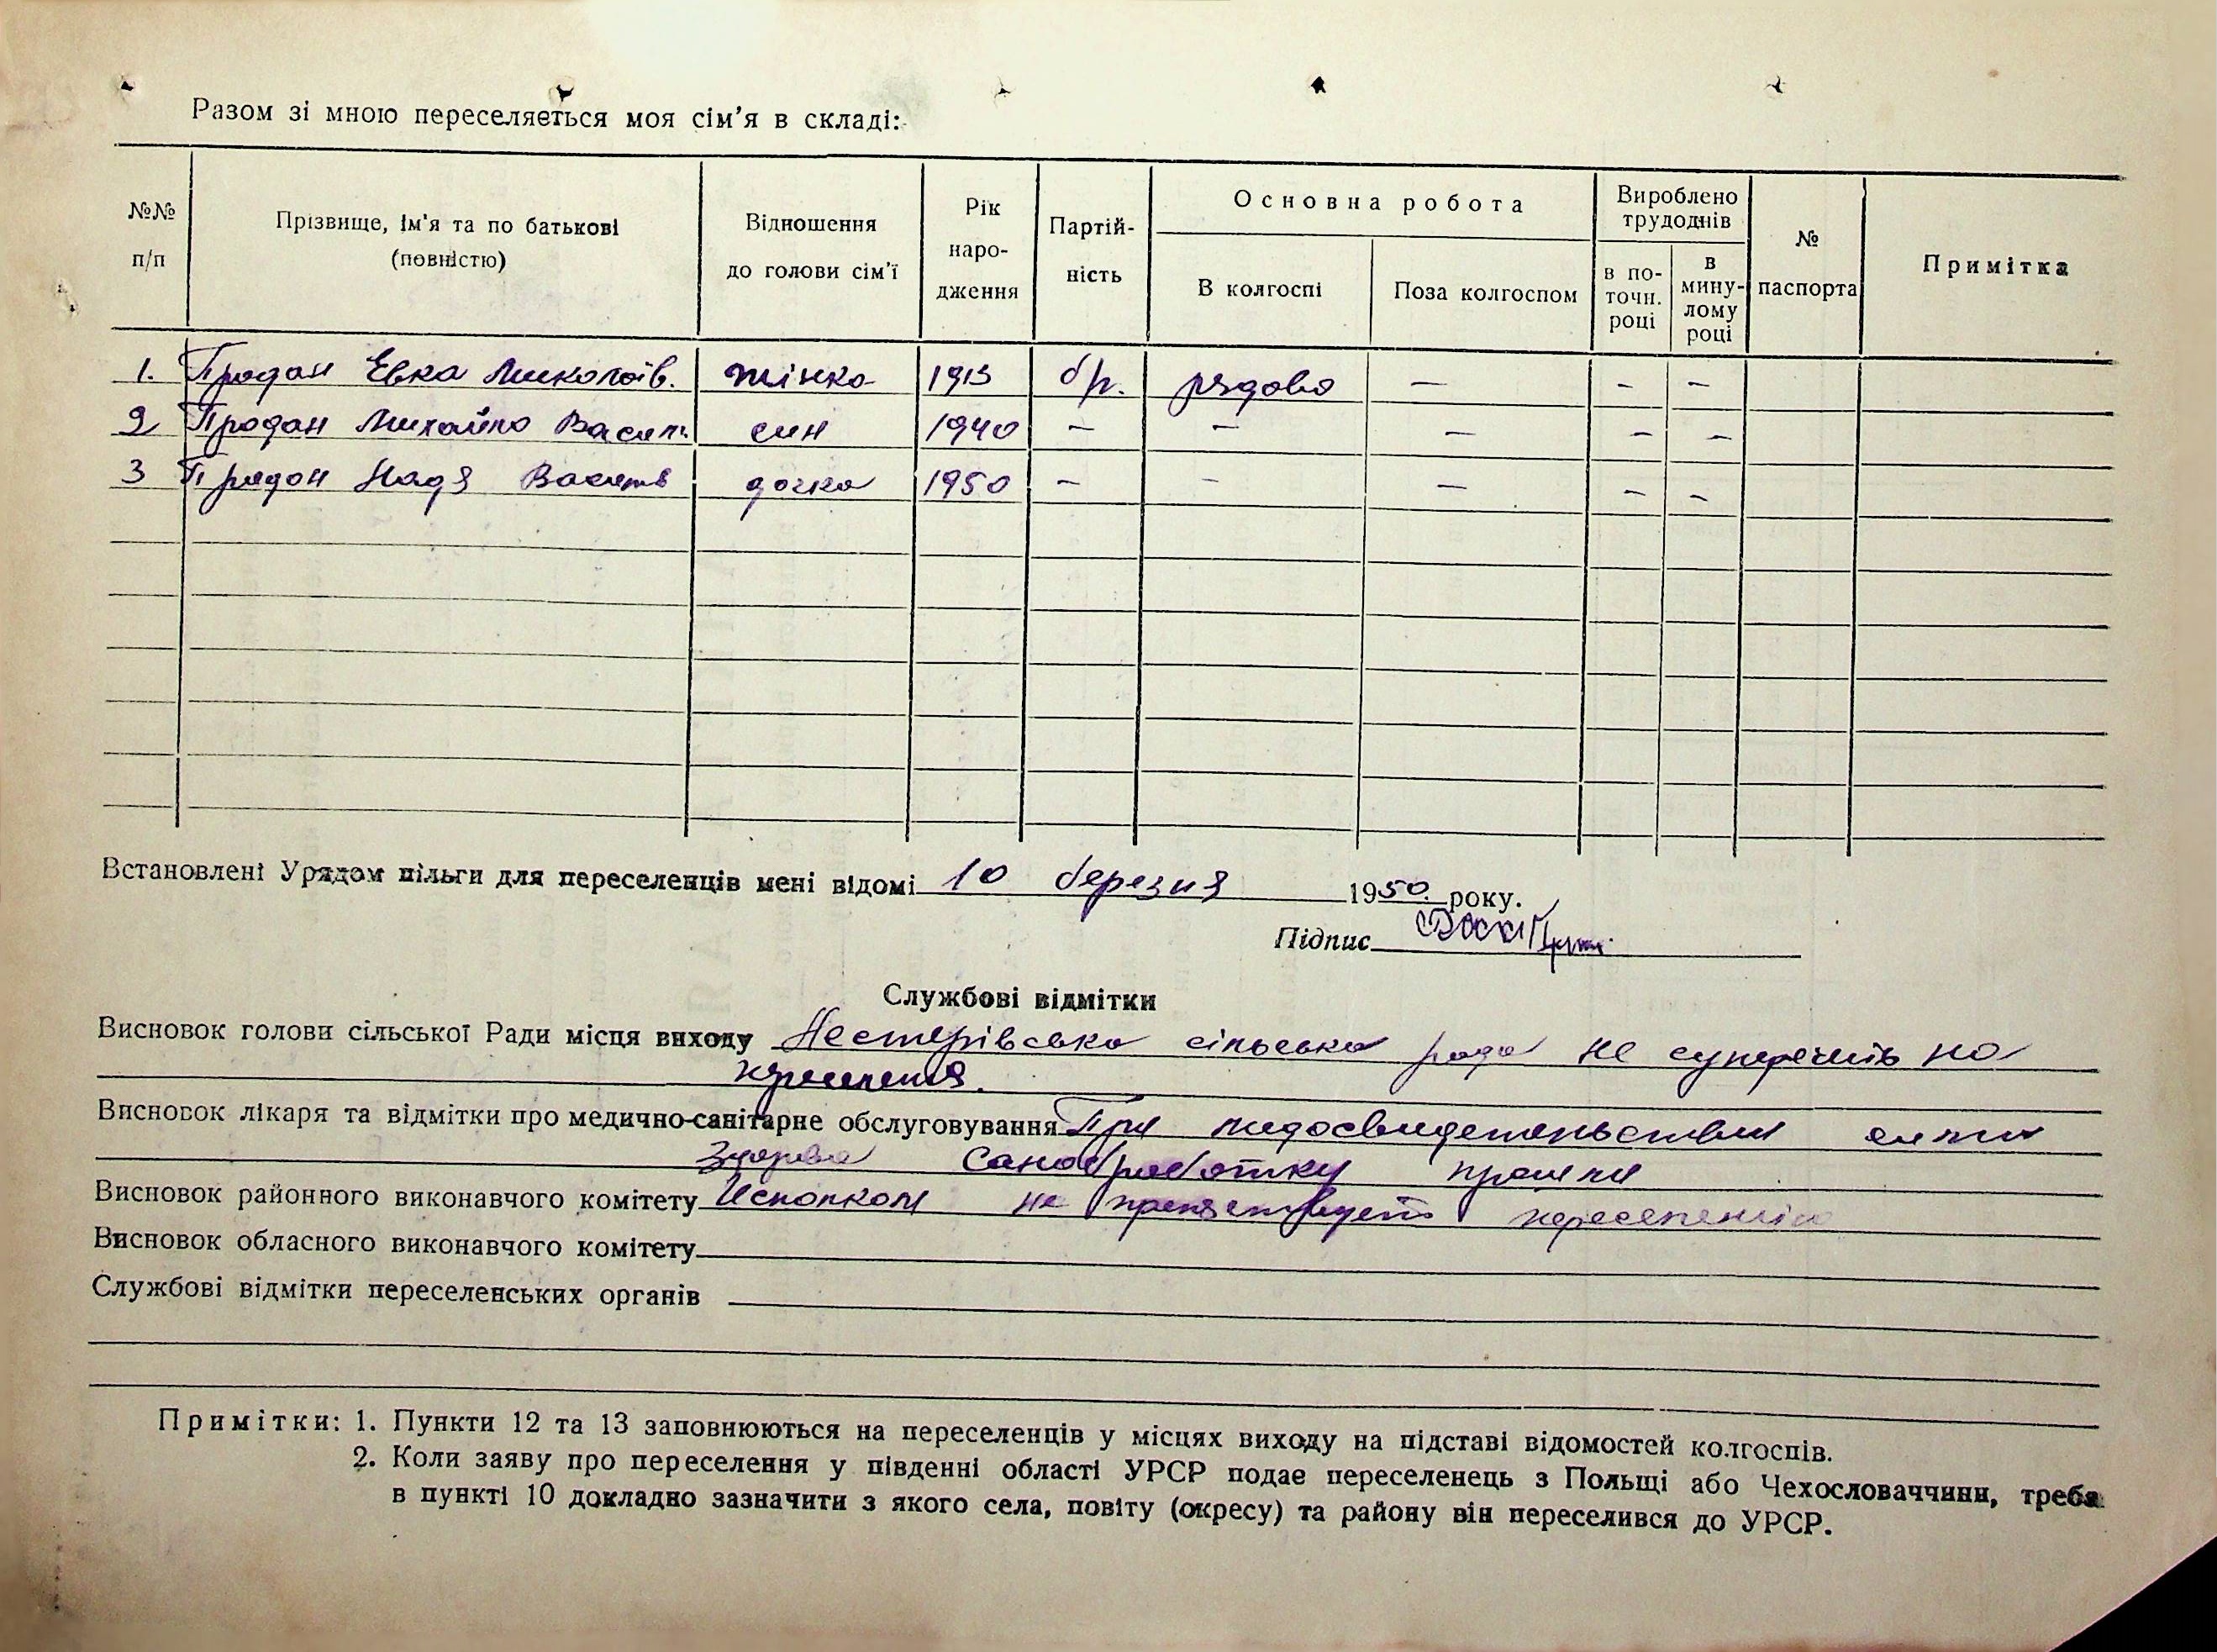 Разом зі мною переселяється моя сім'я в складі:
№№ п/п
Прізвище, ім'я та по батькові (повністю)
Відношення до голови сім'ї
Рік народження
Партійність
Основна робота
В колгоспі
Поза колгоспом
Вироблено трудоднів
в поточн. році
в минулому році
№ паспорта
Примітка
1. Продан Евка Миколаїв. жінка 1913 бп. рядова — – –
2 Продан Михайло Васил. син 1940 – – – – –
3 Продан Надя Василів дочка 1950 – – – – –
Встановлені Урядом пільги для переселенців мені відомі 10 березня 1950. року.
Підпис
Службові відмітки
Висновок голови сільської Ради місця виходу Нестерівська сільська рада не суперечить на
переселення.
Висновок лікаря та відмітки про медично-санітарне обслуговування При медосвидетельствии
здорова Санобработку прошли
Висновок районного виконавчого комітету Исполком не препятствует переселению
Висновок обласного виконавчого комітету
Службові відмітки переселенських органів
Примітки: 1. Пункти 12 та 13 заповнюються на переселенців у місцях виходу на підставі відомостей колгоспів.
2. Коли заяву про переселення у південні області УРСР подає переселенець з Польщі або Чехословаччини, треба
в пункті 10 докладно зазначити з якого села, повіту (окресу) та району він переселився до УРСР.